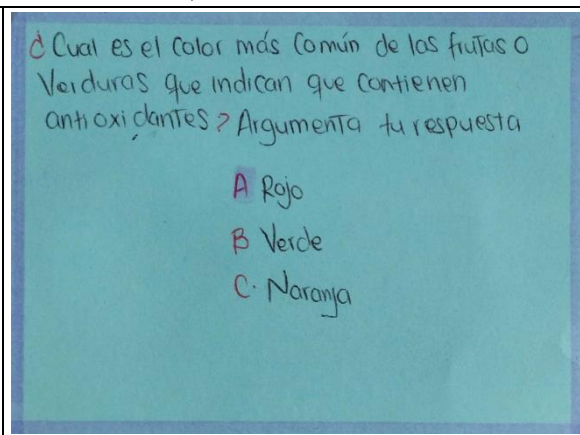 ¿Cual es el color más común de las frutas o
Verduras que indican que contienen
antioxidantes? Argumenta tu respuesta
A Rojo
B Verde
C. Naranja